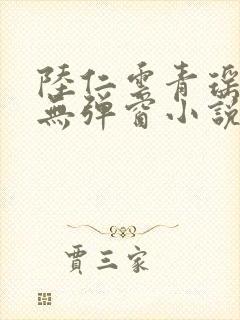 陸仁雲青瑶
無彈窗小說
賈三家